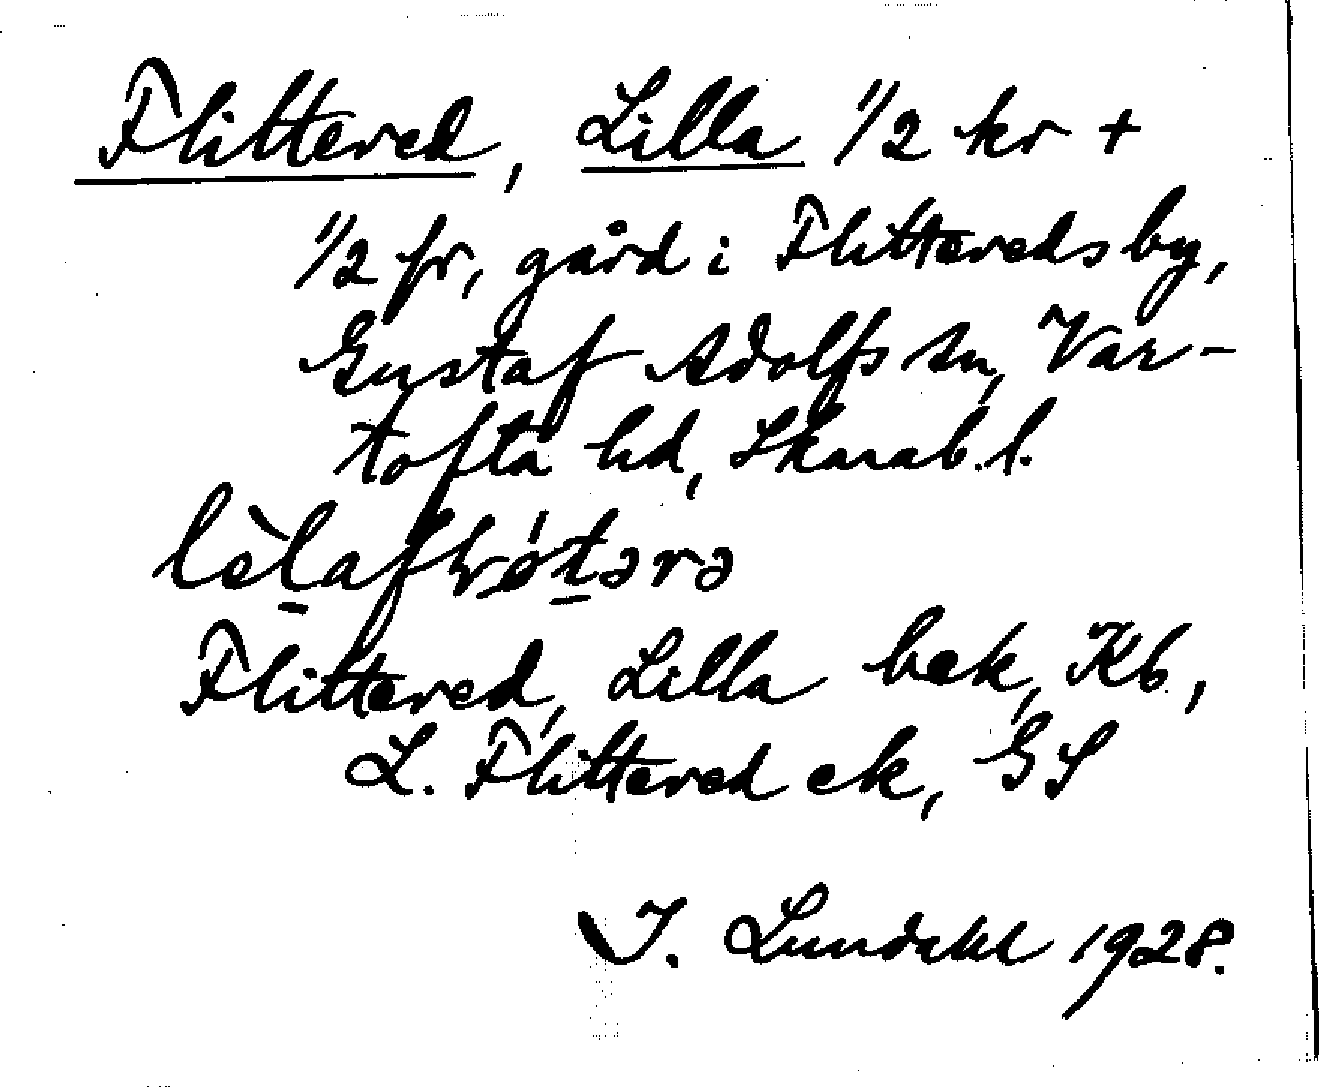 Flittered, Lilla 1/2 kr +
1/2 fr, gård i Flittereds by,
Gustaf Adolfs sn, Var-
tofta hd, Skarab. l.
Flittered, Lilla bek, Kb,
L. Flittered ek, GS
I. Lundahl 1928.